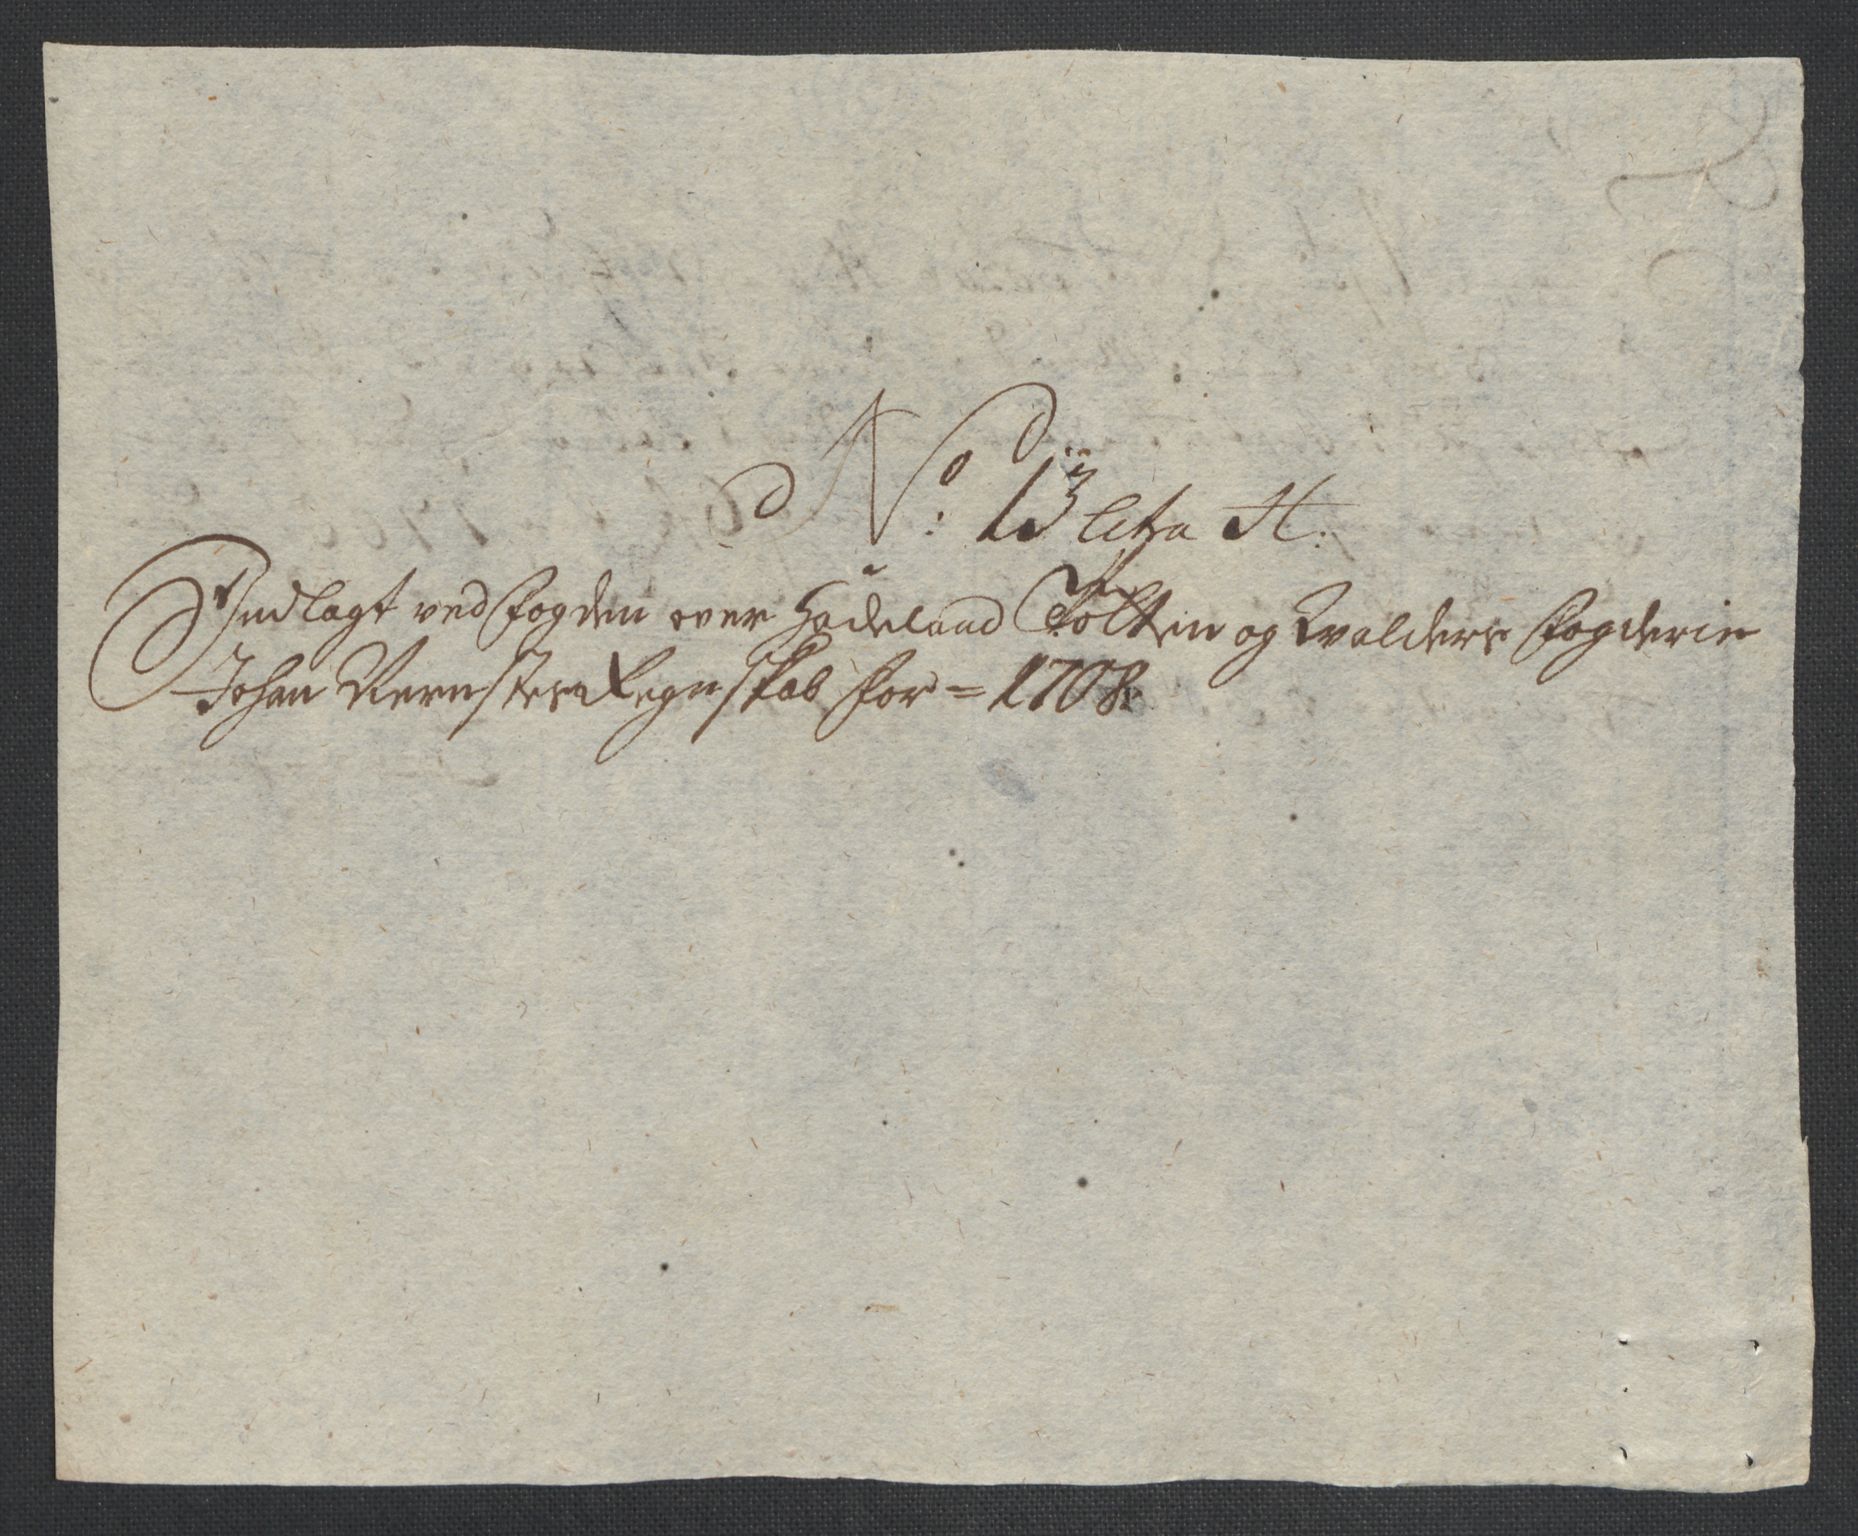 No: 13 litra H:
Indlagt ved fogden over Hadeland Tolten og Walders fogderie
Johan Regnskab for = 1708.